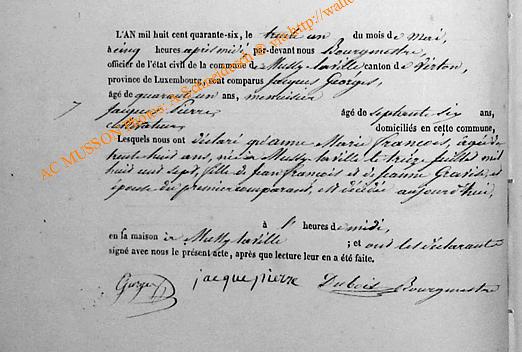 L'AN mil huit cent quarante-six, le trente un du mois de Mai,
à cinq heures après midi par-devant nous Bourgmestre,
officier de l'état civil de la commune de Mussy-la-ville canton de Virton,
province de Luxembourg, sont comparus Jacques Georges,
âgé de quarante un ans, menuisier
Jacques Pierre, âgé de septante six ans,
cultivateur, domiciliés en cette commune,
Lesquels nous ont déclaré qu'anne Marie francois, âgée de
trente huit ans, née à Mussy-laville le treize juillet mil
huit cent sept, fille de jean francois et de jeanne et
épouse du premier comparant, est décédée aujourd'hui,
à heures de midi,
en sa maison à Mussy-laville ; et ont les déclarants
signé avec nous le présent acte, après que lecture leur en a été faite.
jacque pierre Dubois Bourgmestre
AC MUSSON